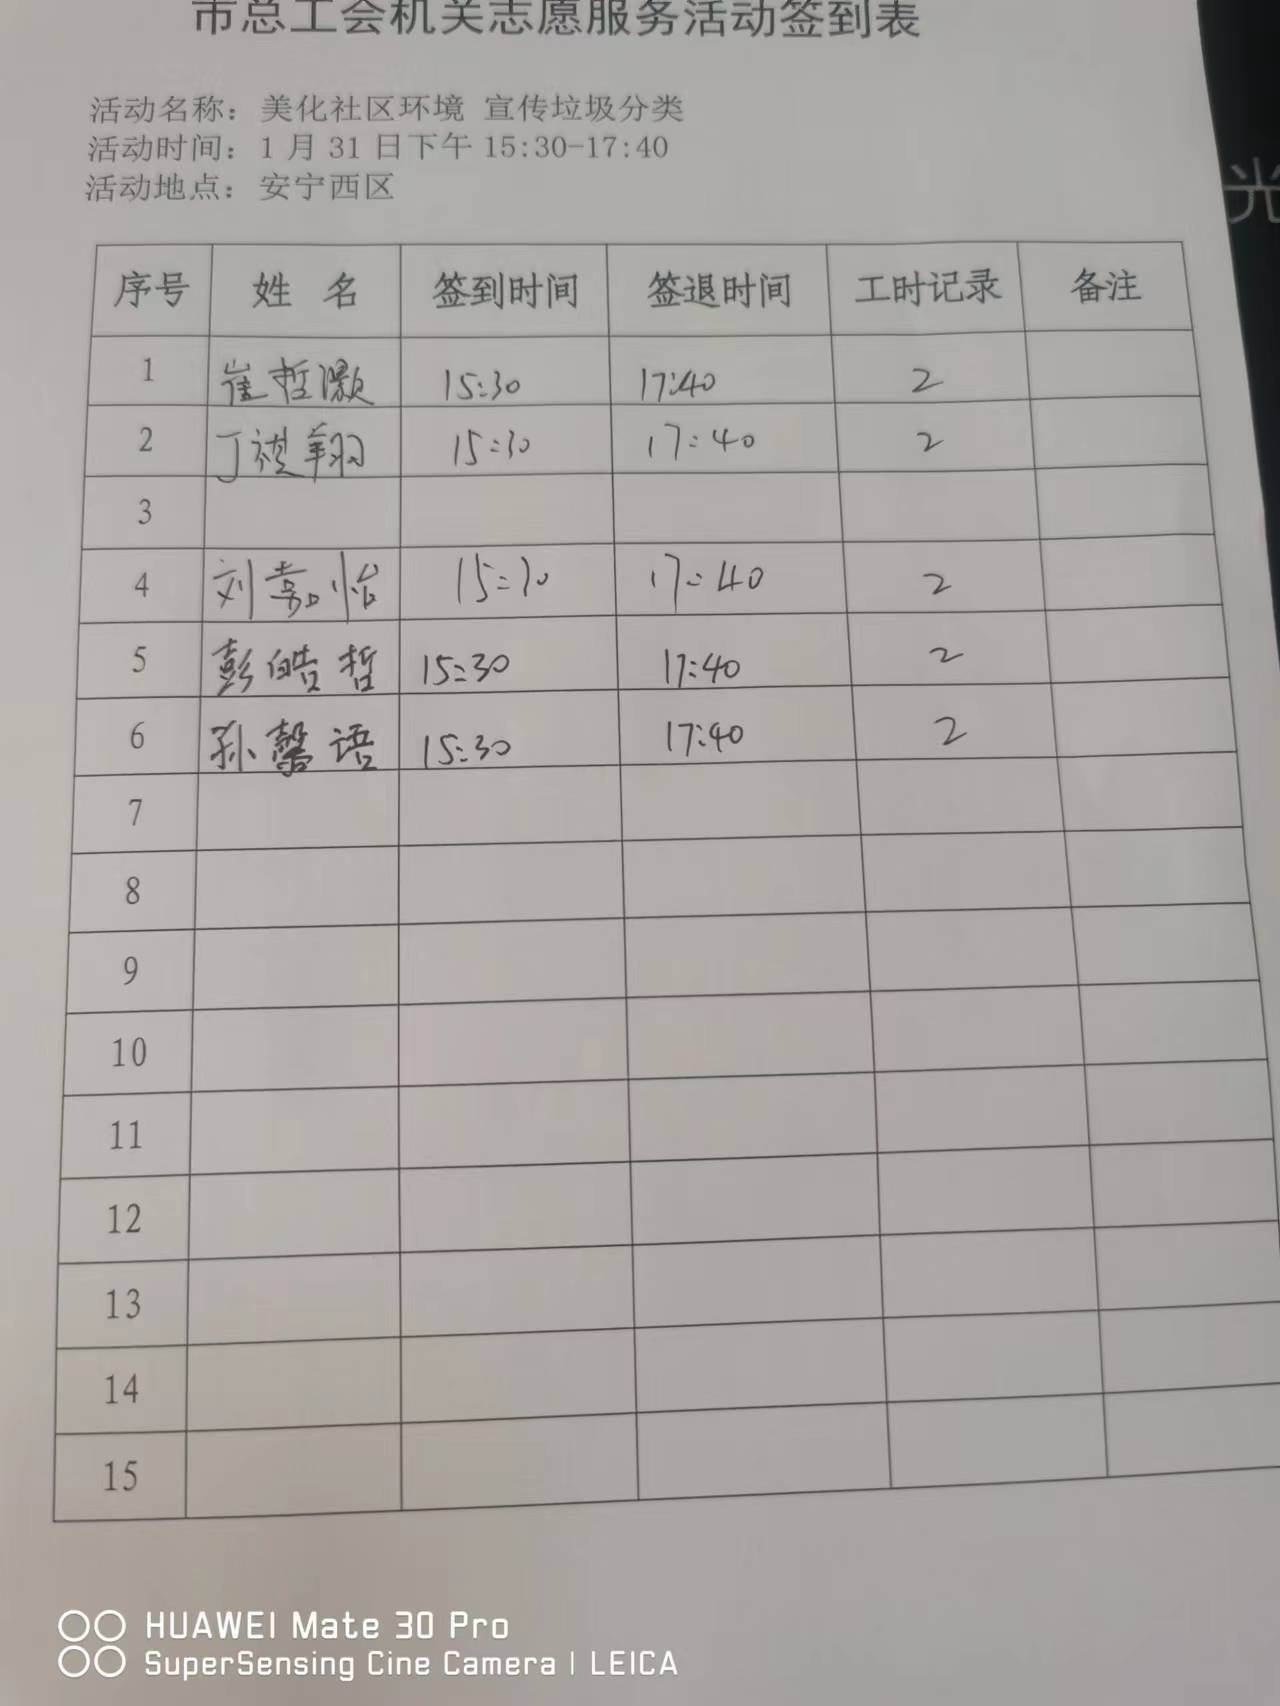 市总工会机关志愿服务活动签到表
活动名称：美化社区环境 宣传垃圾分类
活动时间：1月31日下午15:30-17:40
活动地点：安宁西区
光
序号 姓 名 签到时间 签退时间 工时记录 备注
1 崔哲灏 15:30 17:40 2
2 丁祺翔 15:30 17:40 2
3
4 刘嘉怡 15:30 17:40 2
5 彭皓哲 15:30 17:40 2
6 孙馨语 15:30 17:40 2
7
8
9
10
11
12
13
14
15
HUAWEI Mate 30 Pro
SuperSensing Cine Camera | LEICA